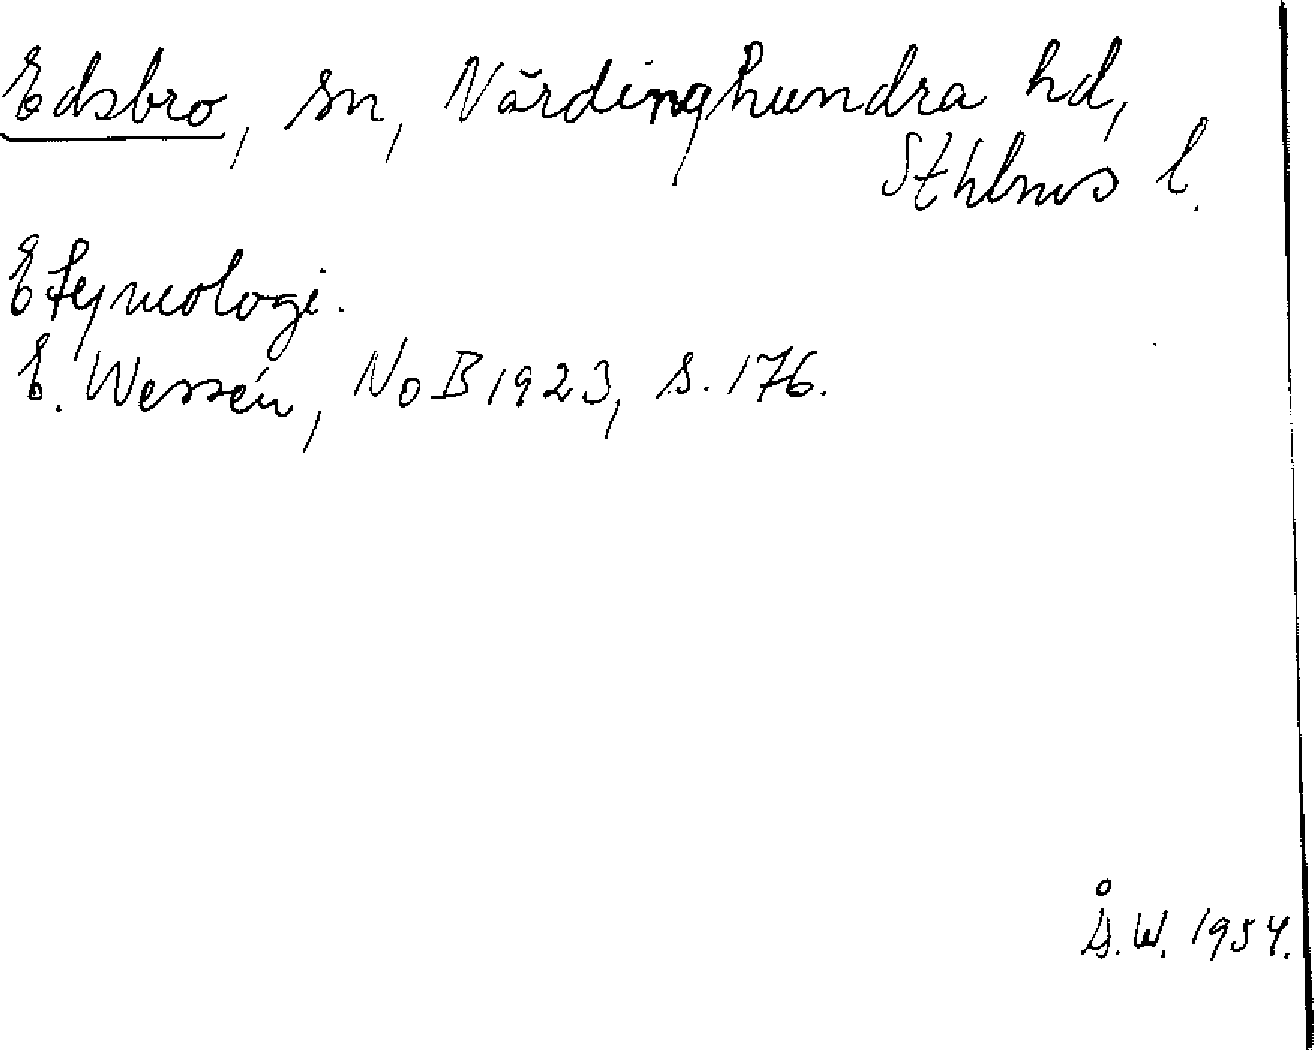 Edsbro, sn, Närdinghundra hd,
Sthlms l.
Etymologi.
E. Wessén, NoB 1923, s. 176.
Å. W. 1954.